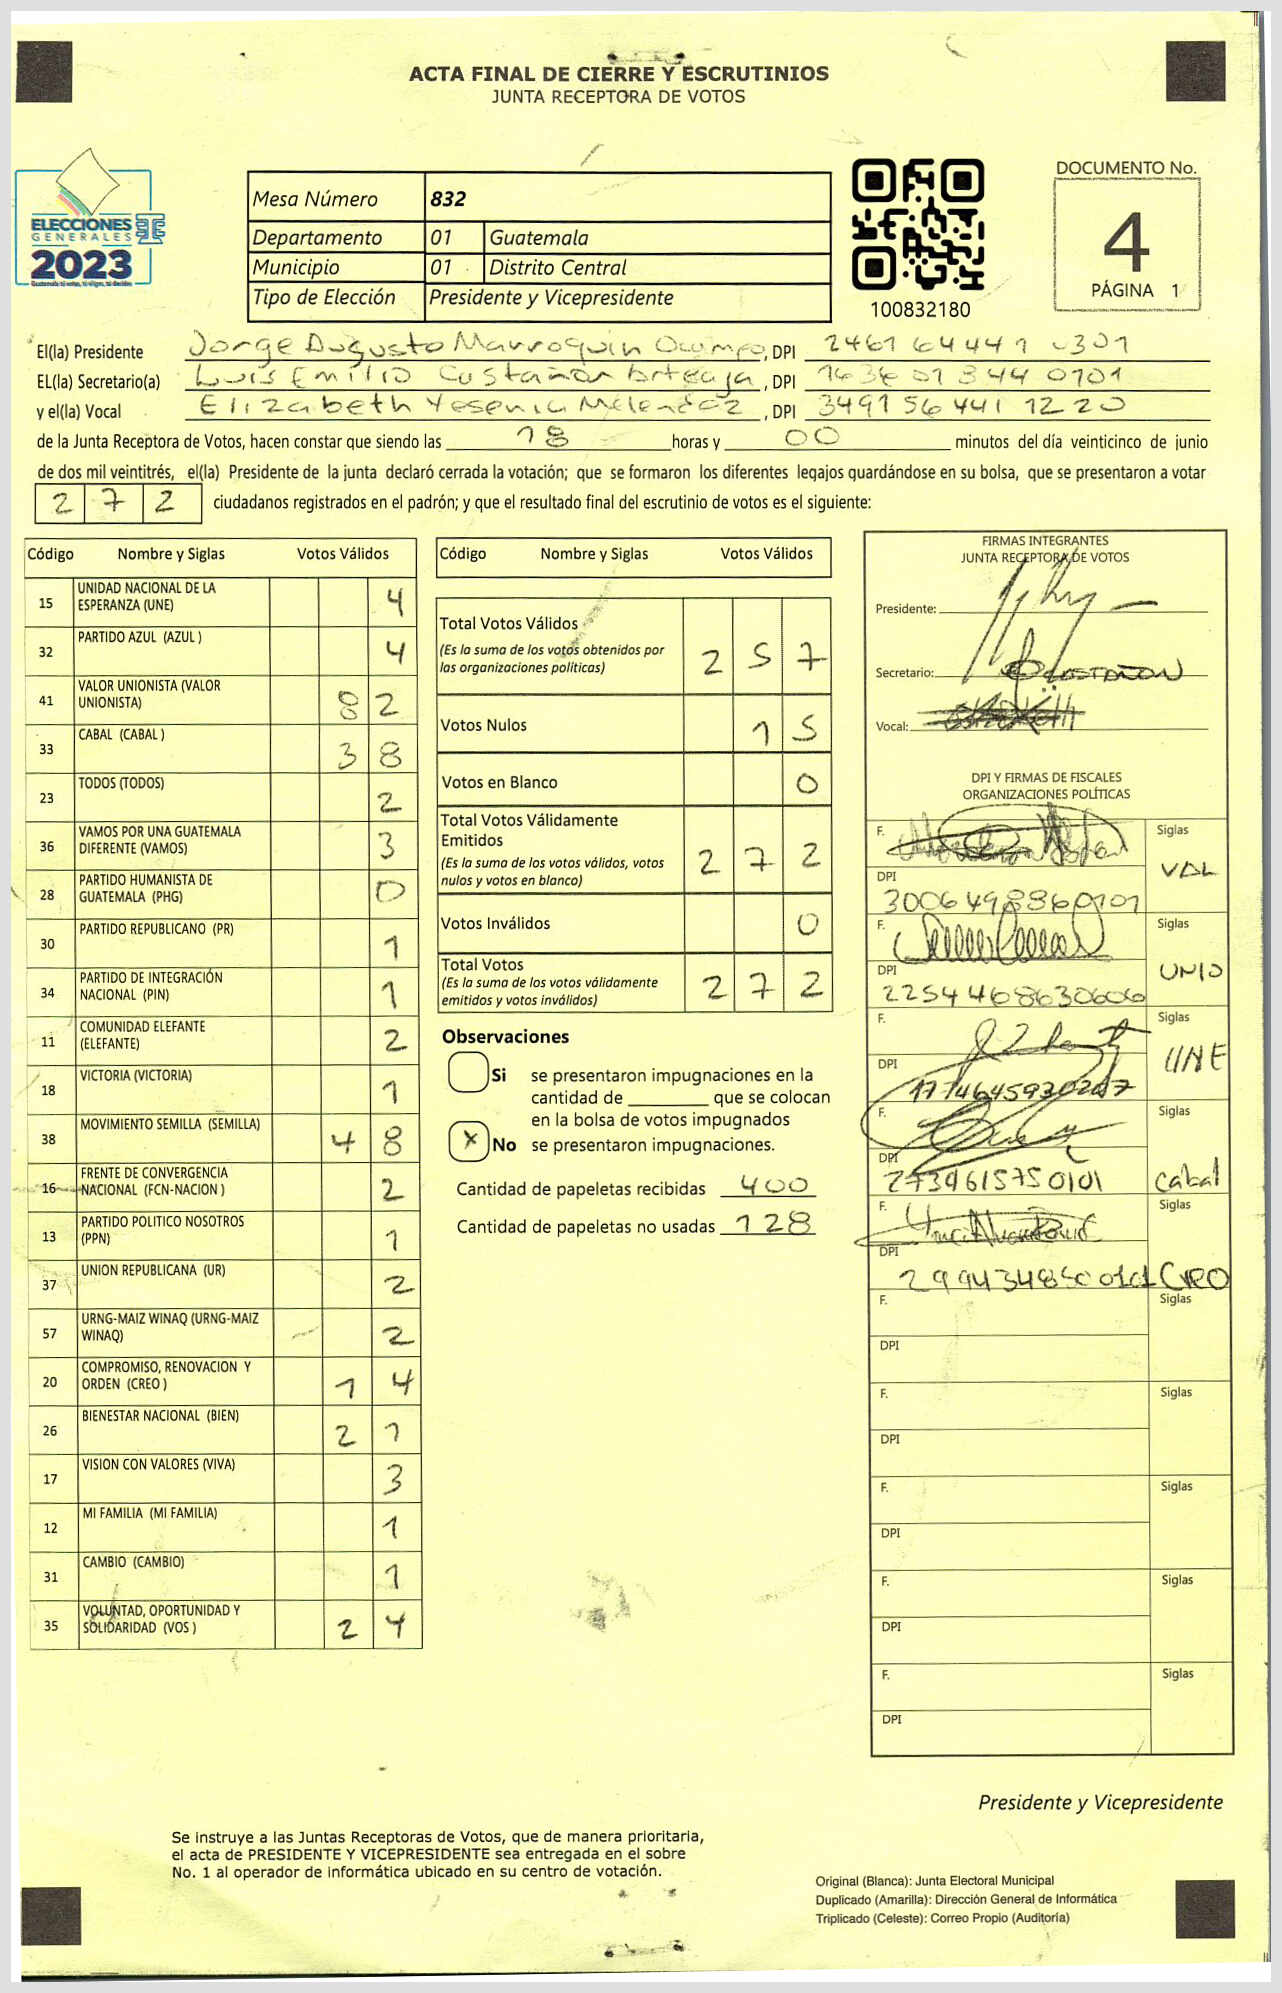 ACTA FINAL DE CIERRE Y ESCRUTINIOS
JUNTA RECEPTORA DE VOTOS
ELECCIONES
GENERALES
2023
Mesa Número 832
Departamento 01 Guatemala
Municipio 01 Distrito Central
Tipo de Elección Presidente y Vicepresidente
100832180
DOCUMENTO No.
4
PÁGINA 1
El(la) Presidente Jorge Augusto Marroquin Ocampo, DPI 2461 64441 0301
EL(la) Secretario(a) Luis Emilio Castañon Arteaga, DPI 1636 01344 0101
y el(la) Vocal Elizabeth Yesenia Melendez, DPI 3491 56441 1220
de la Junta Receptora de Votos, hacen constar que siendo las 18 horas y 00 minutos del día veinticinco de junio
de dos mil veintitrés, el(la) Presidente de la junta declaró cerrada la votación; que se formaron los diferentes legajos quardándose en su bolsa, que se presentaron a votar
272 ciudadanos registrados en el padrón; y que el resultado final del escrutinio de votos es el siguiente:
Código Nombre y Siglas Votos Válidos
15 UNIDAD NACIONAL DE LA ESPERANZA (UNE) 4
32 PARTIDO AZUL (AZUL ) 4
41 VALOR UNIONISTA (VALOR UNIONISTA) 82
33 CABAL (CABAL ) 38
23 TODOS (TODOS) 2
36 VAMOS POR UNA GUATEMALA DIFERENTE (VAMOS) 3
28 PARTIDO HUMANISTA DE GUATEMALA (PHG) 0
30 PARTIDO REPUBLICANO (PR) 1
34 PARTIDO DE INTEGRACIÓN NACIONAL (PIN) 1
11 COMUNIDAD ELEFANTE (ELEFANTE) 2
18 VICTORIA (VICTORIA) 1
38 MOVIMIENTO SEMILLA (SEMILLA) 48
16 FRENTE DE CONVERGENCIA NACIONAL (FCN-NACION ) 2
13 PARTIDO POLITICO NOSOTROS (PPN) 1
37 UNION REPUBLICANA (UR) 2
57 URNG-MAIZ WINAQ (URNG-MAIZ WINAQ) 2
20 COMPROMISO, RENOVACION Y ORDEN (CREO ) 14
26 BIENESTAR NACIONAL (BIEN) 21
17 VISION CON VALORES (VIVA) 3
12 MI FAMILIA (MI FAMILIA) 1
31 CAMBIO (CAMBIO) 1
35 VOLUNTAD, OPORTUNIDAD Y SOLIDARIDAD (VOS ) 24
Código Nombre y Siglas Votos Válidos
Total Votos Válidos 257
(Es la suma de los votos obtenidos por
las organizaciones políticas)
Votos Nulos 15
Votos en Blanco 0
Total Votos Válidamente
Emitidos 272
(Es la suma de los votos válidos, votos
nulos y votos en blanco)
Votos Inválidos 0
Total Votos 272
(Es la suma de los votos válidamente
emitidos y votos inválidos)
Observaciones
Si se presentaron impugnaciones en la
cantidad de ________ que se colocan
en la bolsa de votos impugnados
x No se presentaron impugnaciones.
Cantidad de papeletas recibidas 400
Cantidad de papeletas no usadas 128
FIRMAS INTEGRANTES
JUNTA RECEPTORA DE VOTOS
Presidente:
Secretario:
Vocal:
DPI Y FIRMAS DE FISCALES
ORGANIZACIONES POLÍTICAS
F. Siglas
VAL
DPI
3006498860101
F. Siglas
UNIO
DPI
2254468630606
F. Siglas
UNE
DPI
1774645930207
F. Siglas
Cabal
DPI
2734615750101
F. Siglas
CREO
DPI
F. Siglas
DPI
F. Siglas
DPI
F. Siglas
DPI
F. Siglas
DPI
F. Siglas
DPI
Presidente y Vicepresidente
Se instruye a las Juntas Receptoras de Votos, que de manera prioritaria,
el acta de PRESIDENTE Y VICEPRESIDENTE sea entregada en el sobre
No. 1 al operador de informática ubicado en su centro de votación.
Original (Blanca): Junta Electoral Municipal
Duplicado (Amarilla): Dirección General de Informática
Triplicado (Celeste): Correo Propio (Auditoría)